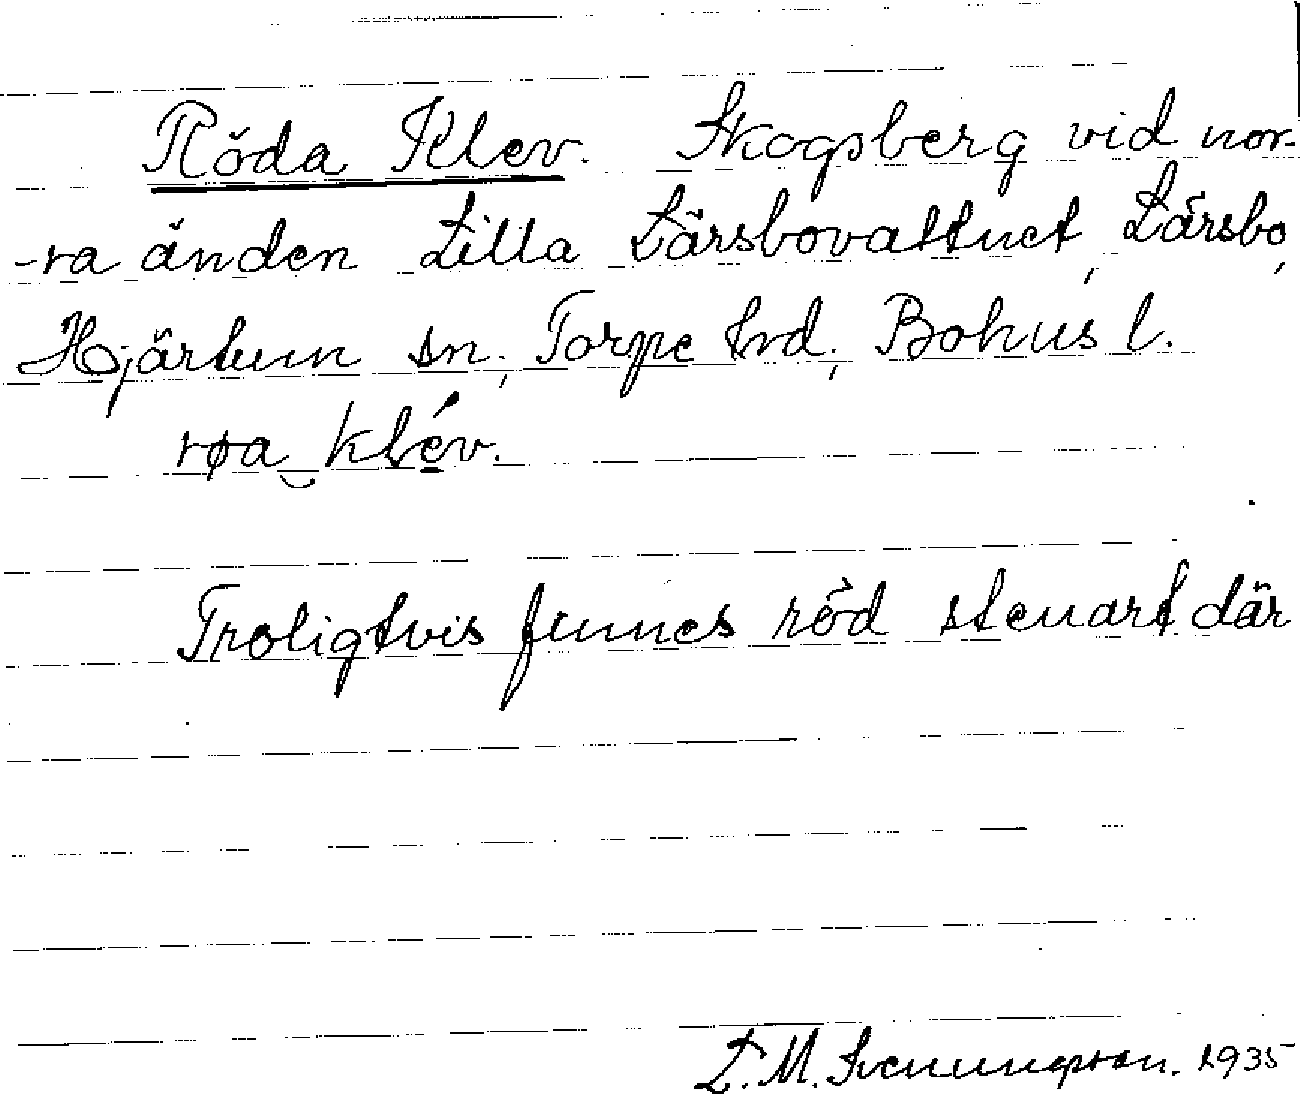 Röda Klev. Skogsberg vid nor-
-ra änden Lilla Lärsbovattnet, Lärsbo,
Hjärtum sn., Torpe hrd., Bohus l.
røa klév.
Troligtvis finnes röd stenart där
L. M. Svenungsson. 1935